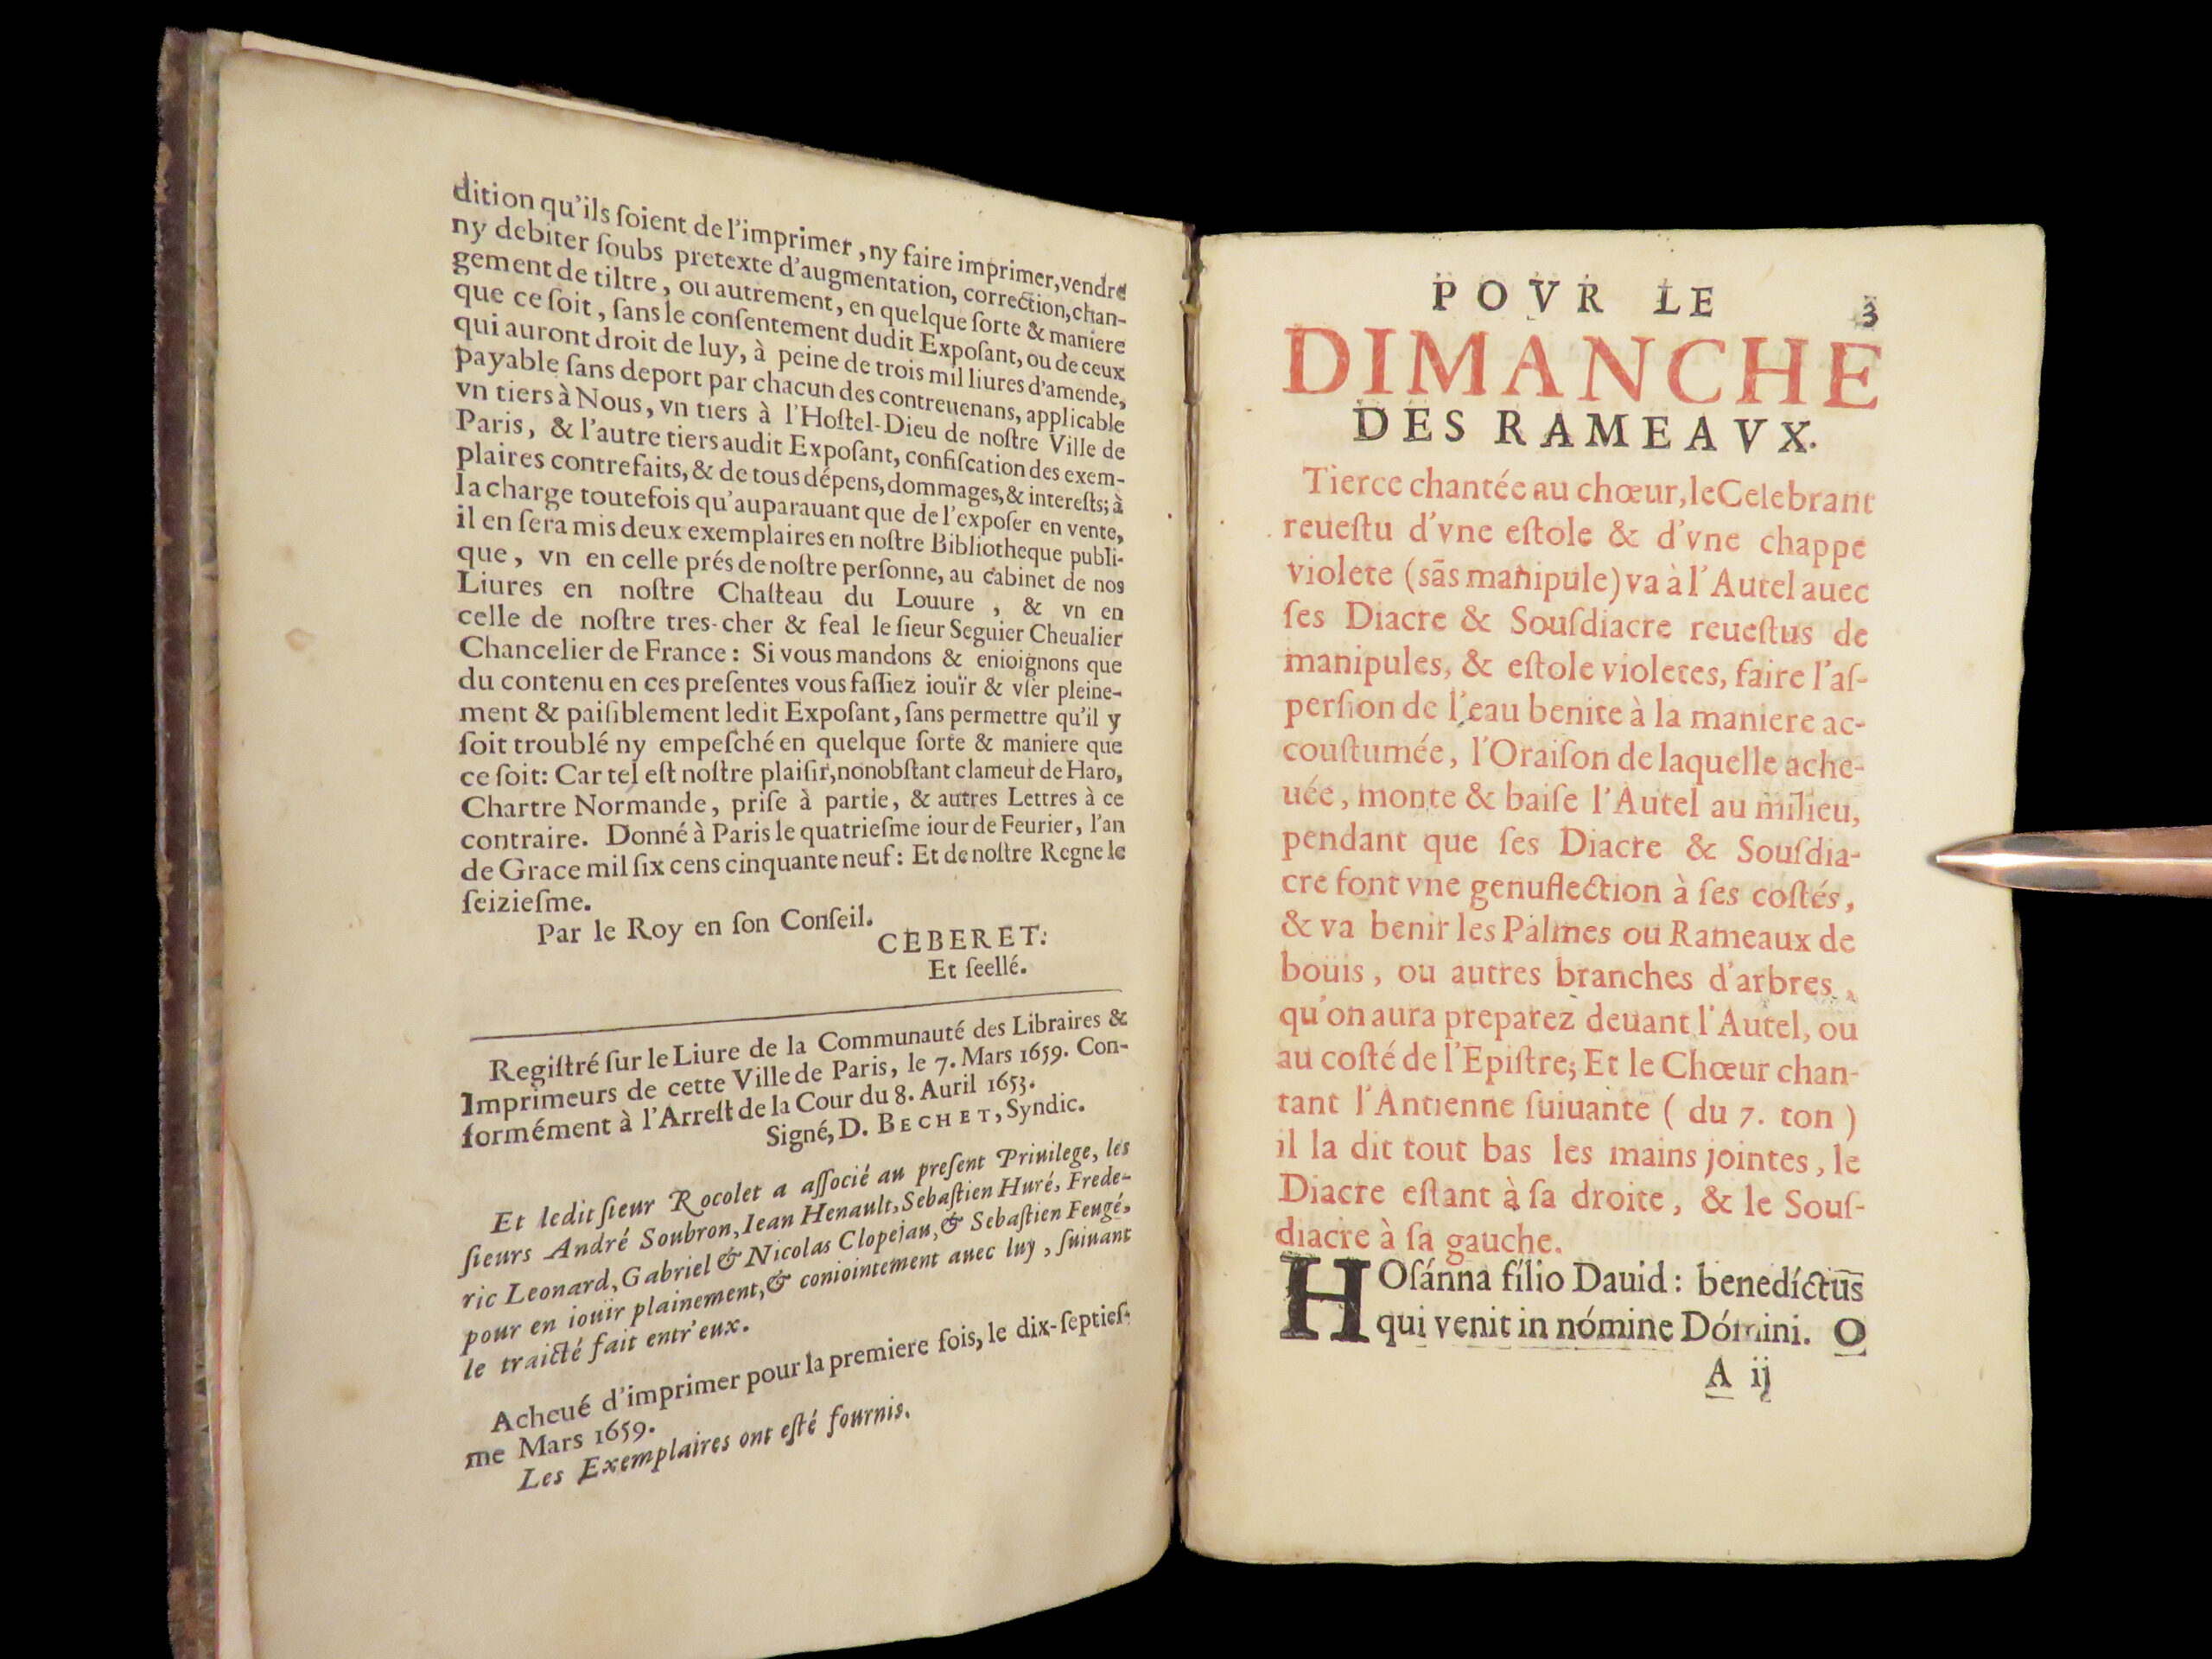 dition qu'ils ſoient de l'imprimer, ny faire imprimer, vendre
ny debiter ſoubs pretexte d'augmentation, correction, chan-
gement de tiltre, ou autrement, en quelque ſorte & maniere
que ce ſoit, ſans le conſentement dudit Expoſant, ou de ceux
qui auront droit de luy, à peine de trois mil liures d'amende,
payable ſans deport par chacun des contreuenans, applicable
vn tiers à Nous, vn tiers à l'Hoſtel-Dieu de noſtre Ville de
Paris, & l'autre tiers audit Expoſant, confiſcation des exem-
plaires contrefaits, & de tous dépens, dommages, & intereſts; à
la charge toutefois qu'auparauant que de l'expoſer en vente,
il en ſera mis deux exemplaires en noſtre Bibliotheque publi-
que, vn en celle prés de noſtre perſonne, au cabinet de nos
Liures en noſtre Chaſteau du Louure, & vn en
celle de noſtre tres-cher & feal le ſieur Seguier Cheualier
Chancelier de France: Si vous mandons & enioignons que
du contenu en ces preſentes vous faſſiez iouïr & vſer pleine-
ment & paiſiblement ledit Expoſant, ſans permettre qu'il y
ſoit troublé ny empeſché en quelque ſorte & maniere que
ce ſoit: Car tel eſt noſtre plaiſir, nonobſtant clameur de Haro,
Chartre Normande, priſe à partie, & autres Lettres à ce
contraire. Donné à Paris le quatrieſme iour de Feurier, l'an
de Grace mil ſix cens cinquante neuf: Et de noſtre Regne le
ſeizieſme.
Par le Roy en ſon Conſeil.
CEBERET.
Et ſeellé.
Regiſtré ſur le Liure de la Communauté des Libraires &
Imprimeurs de cette Ville de Paris, le 7. Mars 1659. Con-
formément à l'Arreſt de la Cour du 8. Auril 1653.
Signé, D. BECHET, Syndic.
Et ledit ſieur Rocolet a aſſocié au preſent Priuilege, les
ſieurs André Soubron, Iean Henault, Sebaſtien Huré, Frede-
ric Leonard, Gabriel & Nicolas Clopejau, & Sebaſtien Feugé,
pour en iouïr plainement, & coniointement auec luy, ſuiuant
le traicté fait entr'eux.
Acheué d'imprimer pour la premiere fois, le dix-ſeptieſ-
me Mars 1659.
Les Exemplaires ont eſté fournis.
POVR LE 3
DIMANCHE
DES RAMEAVX.
Tierce chantée au chœur, le Celebrant
reueſtu d'vne eſtole & d'vne chappe
violete (sãs manipule) va à l'Autel auec
ſes Diacre & Souſdiacre reueſtus de
manipules, & eſtole violetes, faire l'aſ-
perſion de l'eau benite à la maniere ac-
couſtumée, l'Oraiſon de laquelle ache-
uée, monte & baiſe l'Autel au milieu,
pendant que ſes Diacre & Souſdia-
cre font vne genuflection à ſes coſtés,
& va benir les Palmes ou Rameaux de
boüis, ou autres branches d'arbres,
qu'on aura preparez deuant l'Autel, ou
au coſté de l'Epiſtre; Et le Chœur chan-
tant l'Antienne ſuiuante ( du 7. ton )
il la dit tout bas les mains jointes, le
Diacre eſtant à ſa droite, & le Souſ-
diacre à ſa gauche.
HOſánna fílio Dauid: benedíctus
qui venit in nómine Dómini. O
A ij